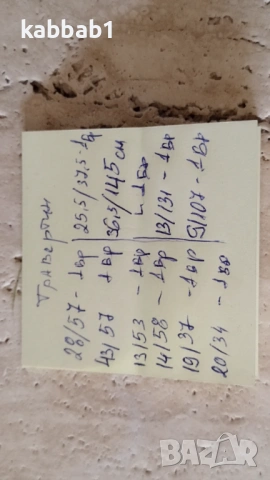 kabbab1
Травертин
28/57 - 1бр
43/57 1бр
13/53 - 1бр
14/58 - 1бр
19/37 - 1бр
20/34 - 1бр
25.5/37.5-1бр
36,5/145 см
- 1бр
13/131 - 1бр
9/107 - 1бр
BAZAR